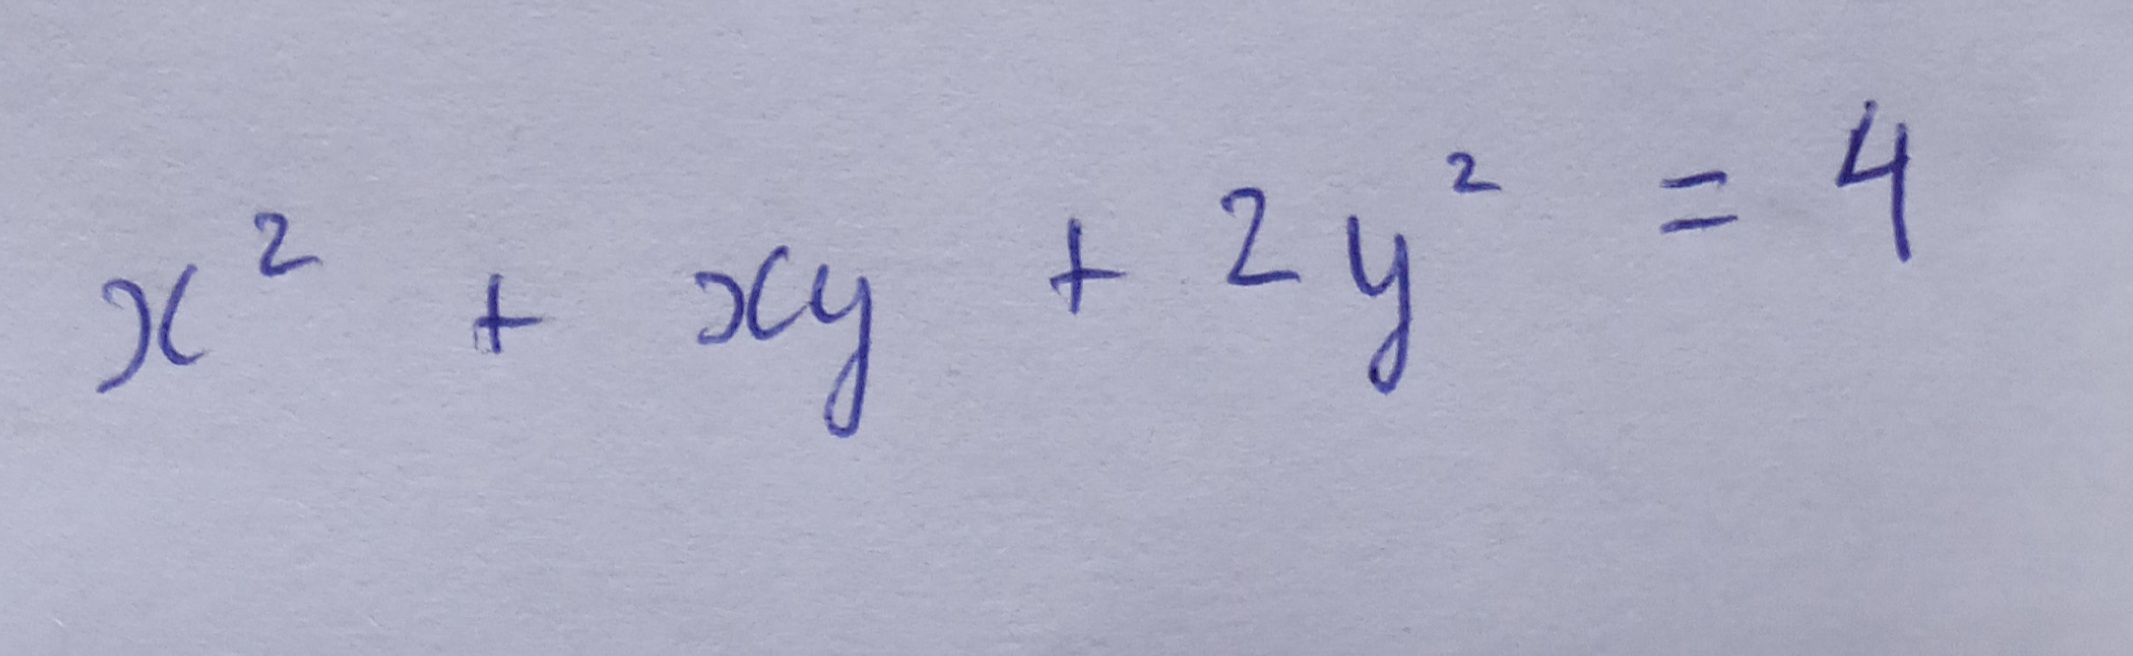 x² + xy + 2y² = 4